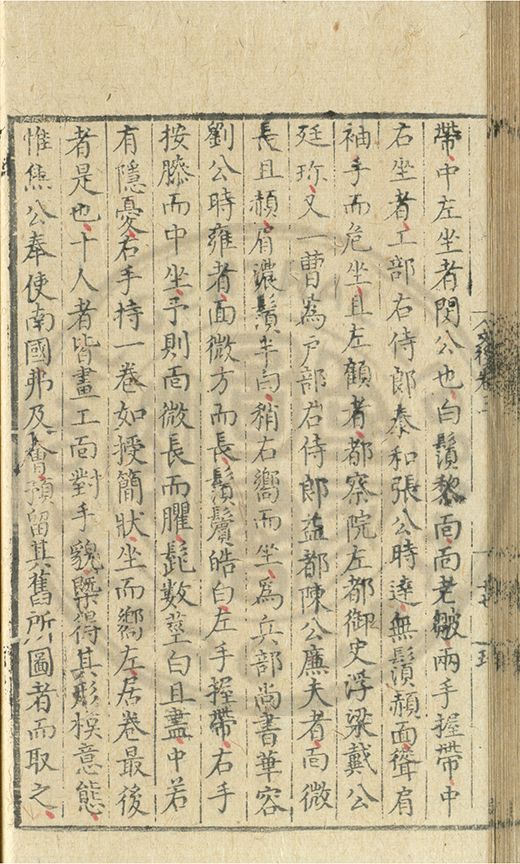 帶中左坐者閔公也白鬚黎面面老皺兩手握帶中
右坐者工部右侍郎泰和張公時達無鬚頳面聳肩
袖手而危坐且左顧者都察院左都御史浮梁戴公
廷珍又一曹為戶部右侍郎益都陳公廉夫者面微
長且頳眉濃鬚半白稍右嚮而坐為兵部尚書華容
劉公時雍者面微方而長鬚鬢皓白左手握帶右手
按膝而中坐予則面微長而臞髭數莖白且盡中若
有隱憂右手持一卷如授簡狀坐而嚮左居卷最後
者是也十人者皆畫工面對手貌槩得其形模意態
惟焦公奉使南國弗及會預留其舊所圖者而取之